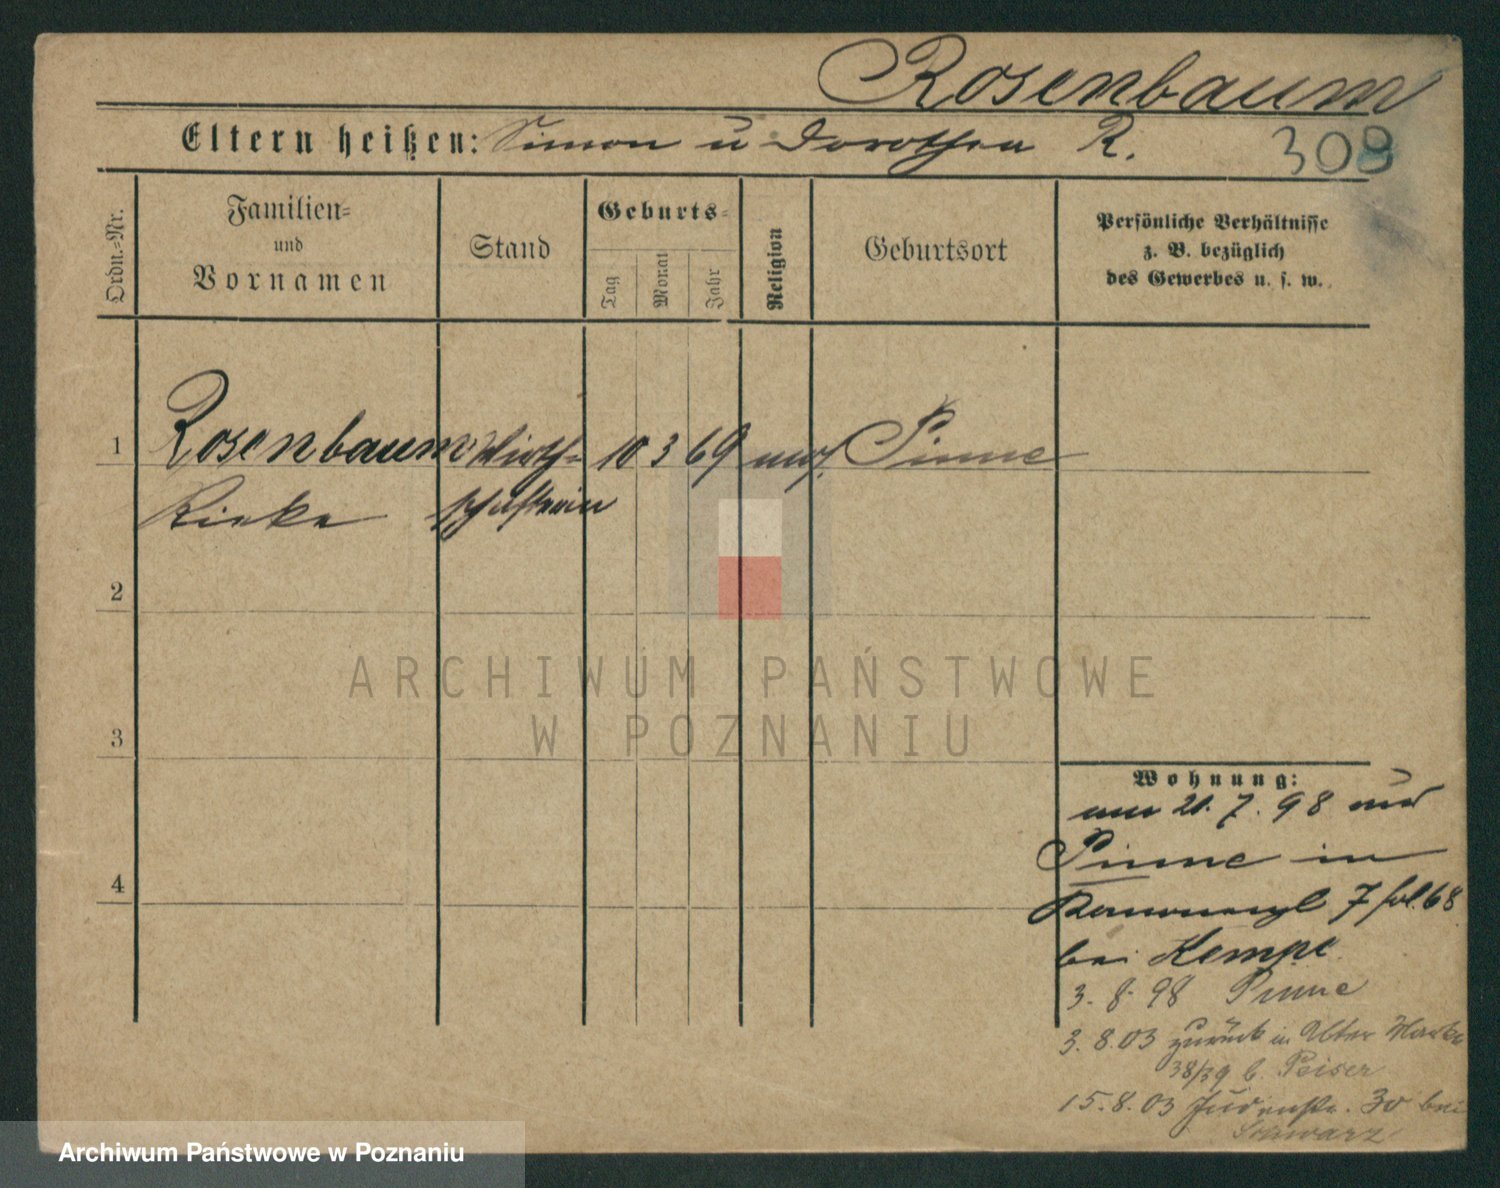 Rosenbaum
Eltern heißen: Simon u Dorothea R. 308
Ordn.=Nr.
Familien=
und
Vornamen
Stand
Geburts=
Tag
Monat
Jahr
Religion
Geburtsort
Persönliche Verhältnisse
z. B. bezüglich
des Gewerbes u. s. w.
1 Rosenbaum Wirth= 10 3 69 mos. Pinne
Rieke schafterin
2
3
4
Wohnung:
21. 7. 98
Pinne in
7 fol. 68
bei Kempe
3. 8. 98 Pinne
3. 8. 03 zurück in Alter Markt
38/39 b. Peiser
15. 8. 03 Judenstr. 30 bei
Schwarz
ARCHIWUM PAŃSTWOWE
W POZNANIU
Archiwum Państwowe w Poznaniu